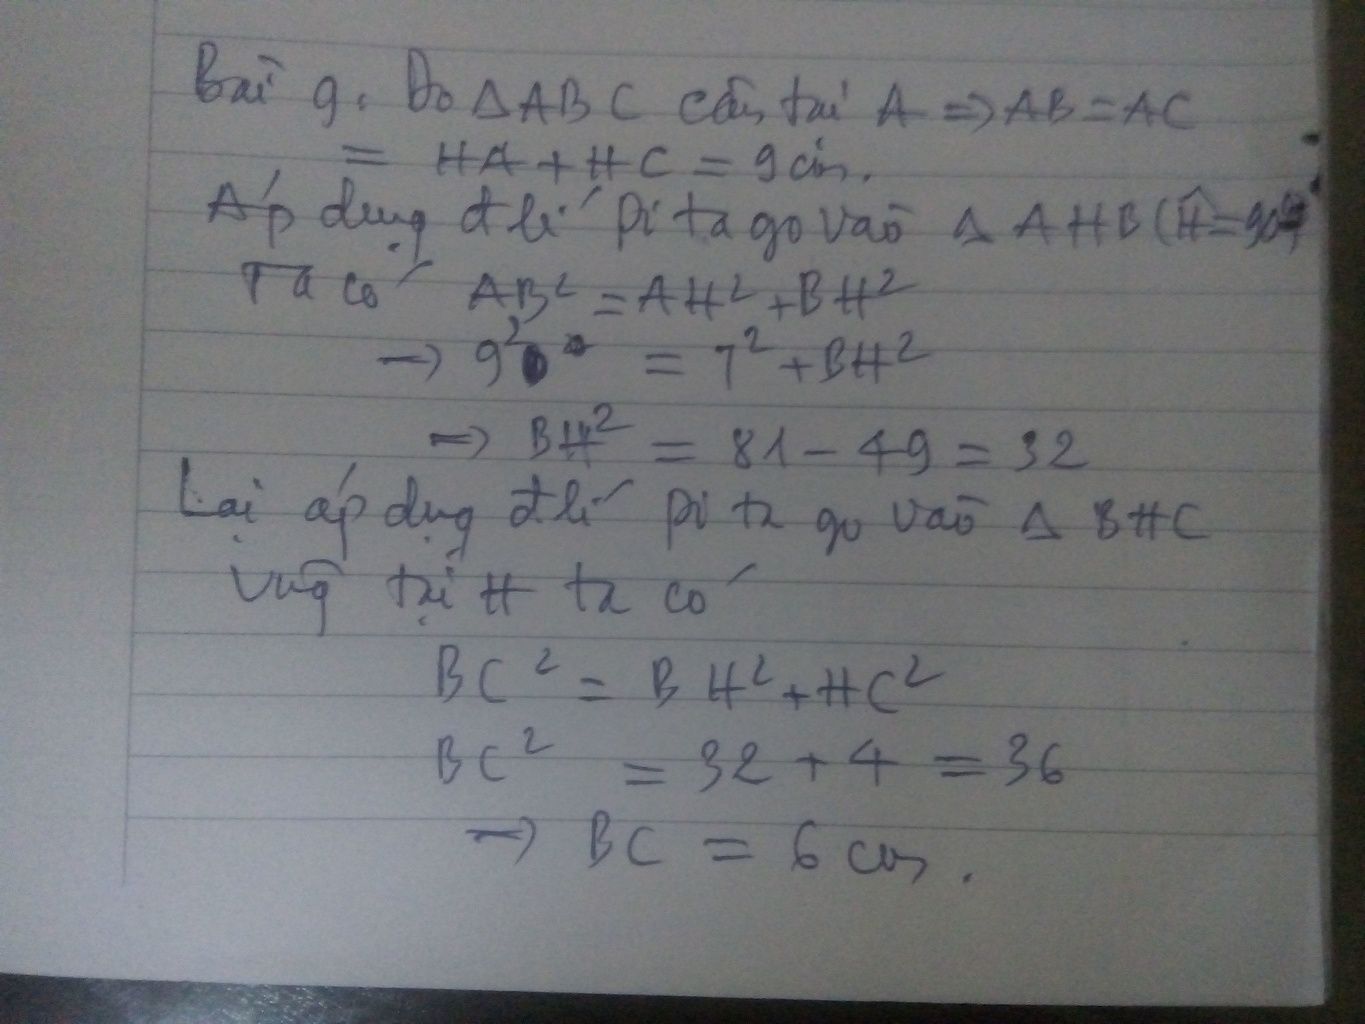 Bài 9. Do ΔABC cân tại A => AB = AC
= HA + HC = 9 cm.
Áp dụng đ lí Pi ta go vào Δ AHB (Ĥ = 90°)
Ta có AB² = AH² + BH²
→ 9² = 7² + BH²
=> BH² = 81 - 49 = 32
Lại áp dụng đ lí pi ta go vào Δ BHC
vuông tại H ta có
BC² = BH² + HC²
BC² = 32 + 4 = 36
→ BC = 6 cm.